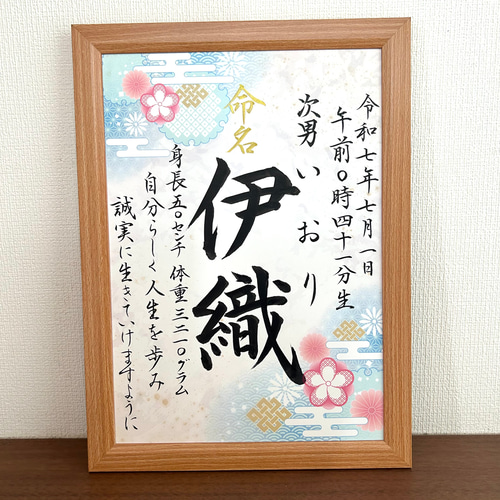 令和七年七月一日
午前〇時四十一分生
次男 いおり
命名
伊織
身長五〇センチ 体重三二一〇グラム
自分らしく人生を歩み
誠実に生きていけますように